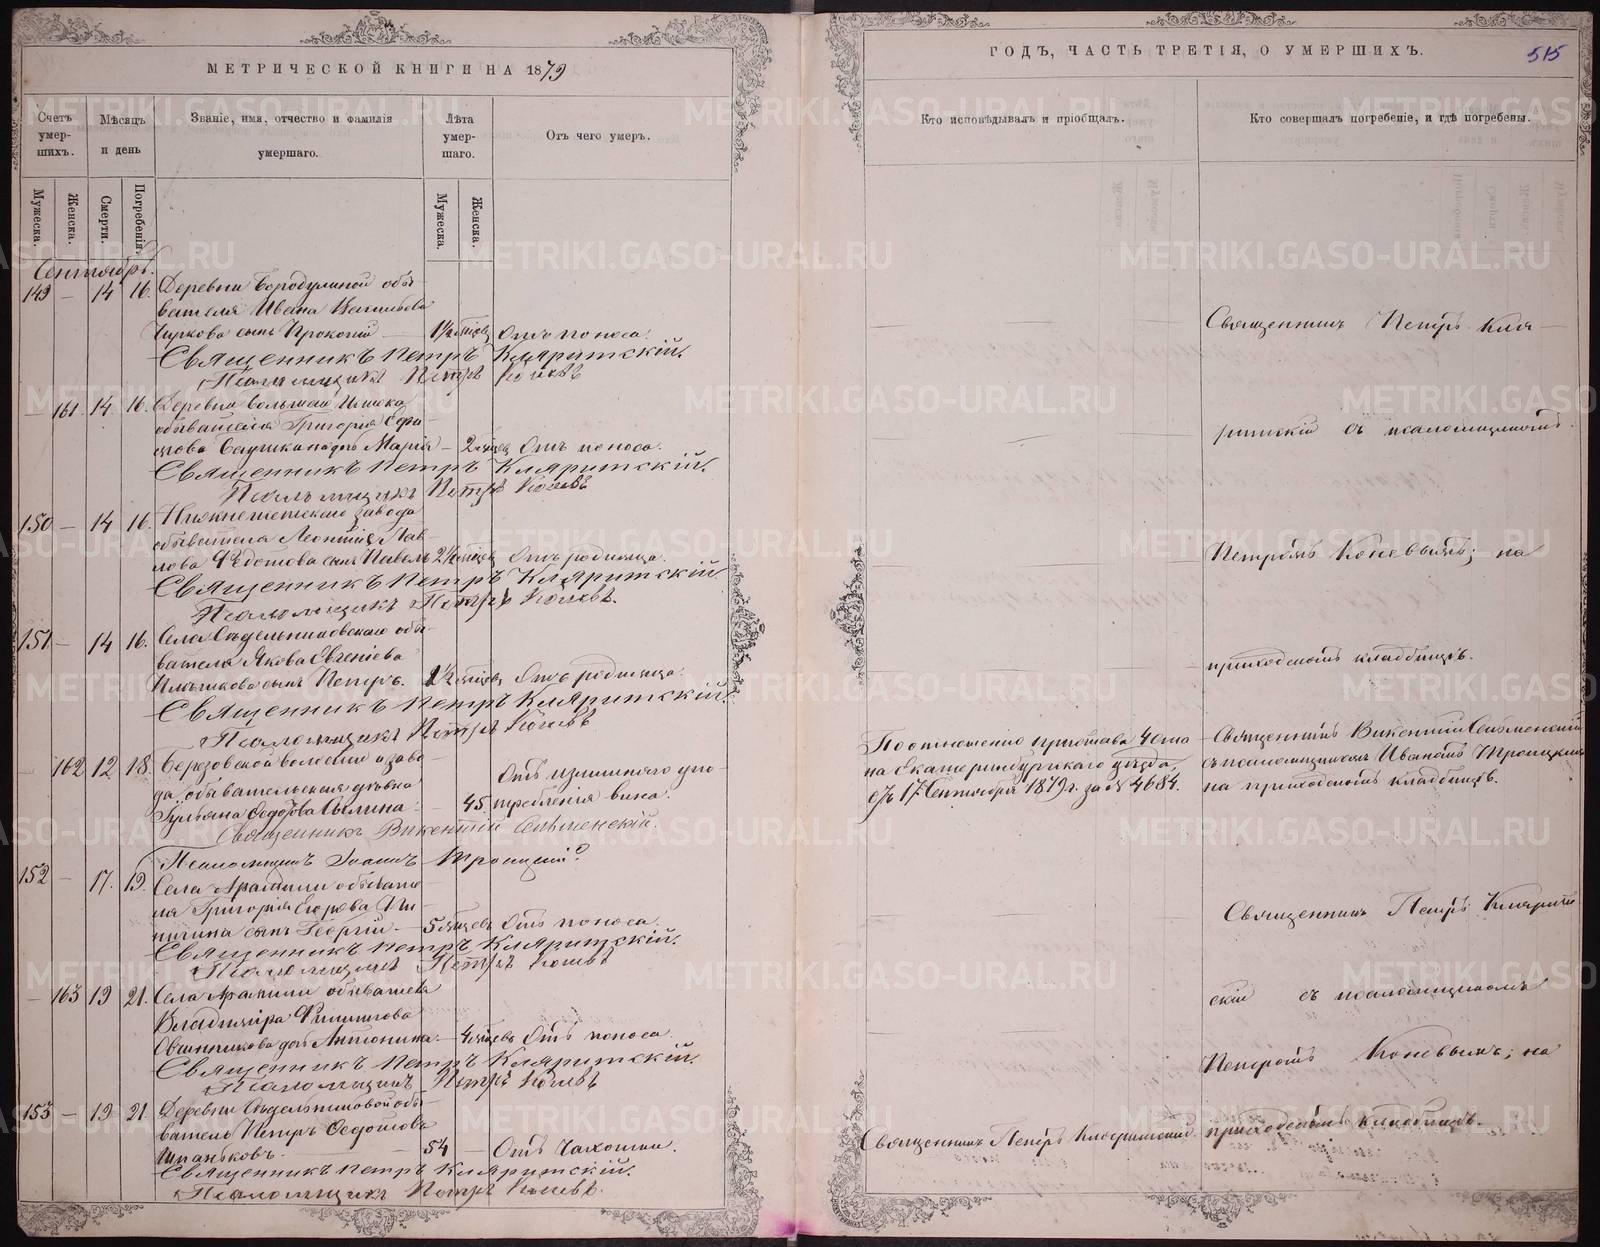 МЕТРИЧЕСКОЙ КНИГИ НА 1879
Счетъ умер-шихъ.
Мѣсяцъ и день
Званіе, имя, отчество и фамилія умершаго.
Лѣта умер-шаго.
Отъ чего умеръ.
Мужеска.
Женска.
Смерти.
Погребенія.
Мужеска.
Женска.
Сентябрь.
149 — 14 16. Деревни Бородулиной обы-
вателя Ивана Васильева
Чиркова сынъ Прокопій — Отъ поноса.
Священникъ Петръ Кляритскій.
Псаломщикъ Петръ Коневъ
— 161. 14 16. Деревни
обывателя Григорія Ефи-
мова дочь Марія — 2 Отъ поноса.
Священникъ Петръ Кляритскій.
Псаломщикъ Петръ Коневъ
150 — 14 16. завода
обывателя Леонтія Пав-
лова Ѳедотова сынъ Павелъ Отъ родимца.
Священникъ Петръ Кляритскій.
Псаломщикъ Петръ Коневъ.
151 — 14 16. Села Сѣдельниковскаго обы-
вателя Якова Евгеніева
сынъ Петръ. Отъ родимца.
Священникъ Петръ Кляритскій.
Псаломщикъ Петръ Коневъ
— 162 12 18. Березовской волости и заво-
да обывательская дѣвка
Ѳедотова — 45 Отъ излишняго упо-
требленія вина.
Священникъ Викентій Сельменскій.
Псаломщикъ Іоаннъ Троицкій
152 — 17. 19. Села Арамили обывате-
ля Григорія Егорова
сынъ Георгій. — 5 Отъ поноса.
Священникъ Петръ Кляритскій.
Псаломщикъ Петръ Коневъ
— 163 19 21. Села Арамили обывателя
Владиміра Филипова
Овчинникова дочь Антонина. — 4 Отъ поноса.
Священникъ Петръ Кляритскій.
Псаломщикъ Петръ Коневъ
153 — 19 21. Деревни Сѣдельниковой обы-
ватель Петръ Ѳедотовъ
Шпаньковъ. — 54 — Отъ чахотки.
Священникъ Петръ Кляритскій.
Псаломщикъ Петръ Коневъ.
ГОДЪ, ЧАСТЬ ТРЕТІЯ, О УМЕРШИХЪ.
515
Кто исповѣдывалъ и пріобщалъ.
Кто совершалъ погребеніе, и гдѣ погребены.
Священникъ Петръ Кля-
ритскій съ псаломщикомъ
Петромъ Коневымъ; на
приходскомъ кладбищѣ.
По отношенію пристава 4 стана
Екатеринбургскаго уѣзда,
отъ 17 Сентября 1879 г. за № 4684.
Священникъ Викентій Сельменскій
съ псаломщикомъ Иваномъ Троицкимъ
на приходскомъ кладбищѣ.
Священникъ Петръ Клярит-
скій съ псаломщикомъ
Петромъ Коневымъ; на
Священникъ Петръ Кляритскій.
приходскомъ кладбищѣ.
METRIKI.GASO-URAL.RU